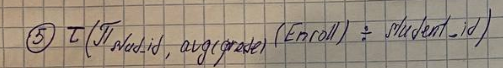 ⑤ τ(π stud_id, avg(grade) (Enroll) ÷ student_id)